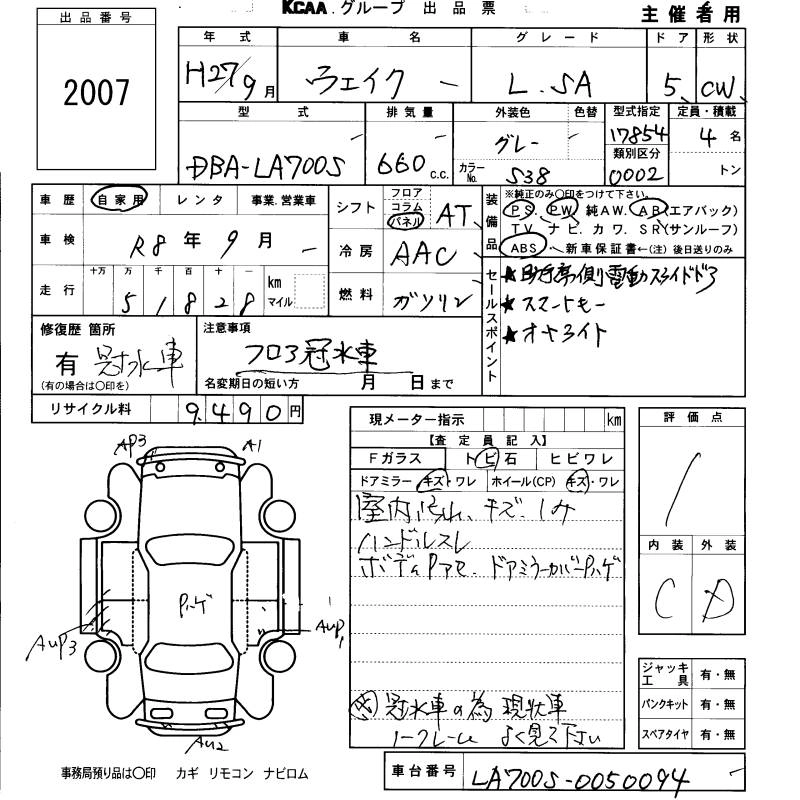 KCAA.グループ 出品票
主催者用
出品番号
2007
年式 車名 グレード ドア 形状
H27/9月 ウェイク L.SA 5 CW
型式 排気量 外装色 色替 型式指定 定員・積載
DBA-LA700S 660 c.c. グレー 17854 4名
カラーNo. S38 類別区分 0002 トン
車歴 自家用 レンタ 事業.営業車
シフト フロア コラム パネル AT
車検 R8年9月
冷房 AAC
走行 十万 万 千 百 十 一 km マイル
51828
燃料 ガソリン
装備品 ※純正のみ○印をつけて下さい。
PS. PW. 純AW. AB(エアバック)
TV. ナビ. カワ. SR(サンルーフ)
ABS 新車保証書←(注)後日送りのみ
セールスポイント
★助手席側電動スライドドア
★スマートキー
★オートライト
修復歴 箇所
有 冠水車
(有の場合は○印を)
注意事項
フロア冠水車
名変期日の短い方 月 日まで
リサイクル料 9,490円
現メーター指示 km
【査定員記入】
Fガラス トビ石 ヒビワレ
ドアミラー キズ・ワレ ホイール(CP) キズ・ワレ
屋内 キズ.シミ
ハンドルスレ
ボディPアセ. ドアミラーカバーPハゲ
冠水車の為 現状車
ノークレーム よく見て下さい
評価点
/
内装 外装
C D
ジャッキ工具 有・無
パンクキット 有・無
スペアタイヤ 有・無
AP3
A1
Pハゲ
AUP3
AUP1
AU2
事務局預り品は○印 カギ リモコン ナビロム
車台番号 LA700S-0050094